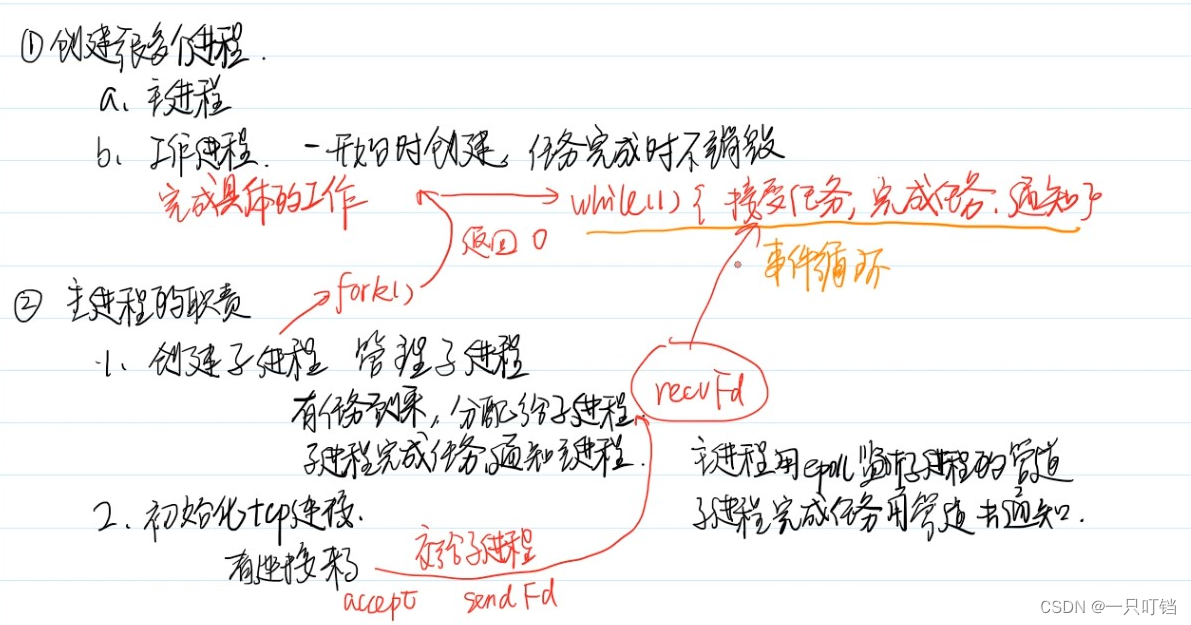 ① 创建很多个进程.
a、主进程
b、工作进程. 一开始时创建, 任务完成时不销毁
完成具体的工作 while(1) { 接受任务, 完成任务. 通知 }
返回 0
事件循环
fork()
② 主进程的职责
1、创建子进程 管理子进程
recvFd
有任务到来, 分配给子进程
子进程完成任务, 通知主进程.
主进程用epoll监听子进程的管道
2、初始化tcp连接.
子进程完成任务用管道去通知.
交给子进程
有连接来了
accept sendFd
CSDN @一只叮铛